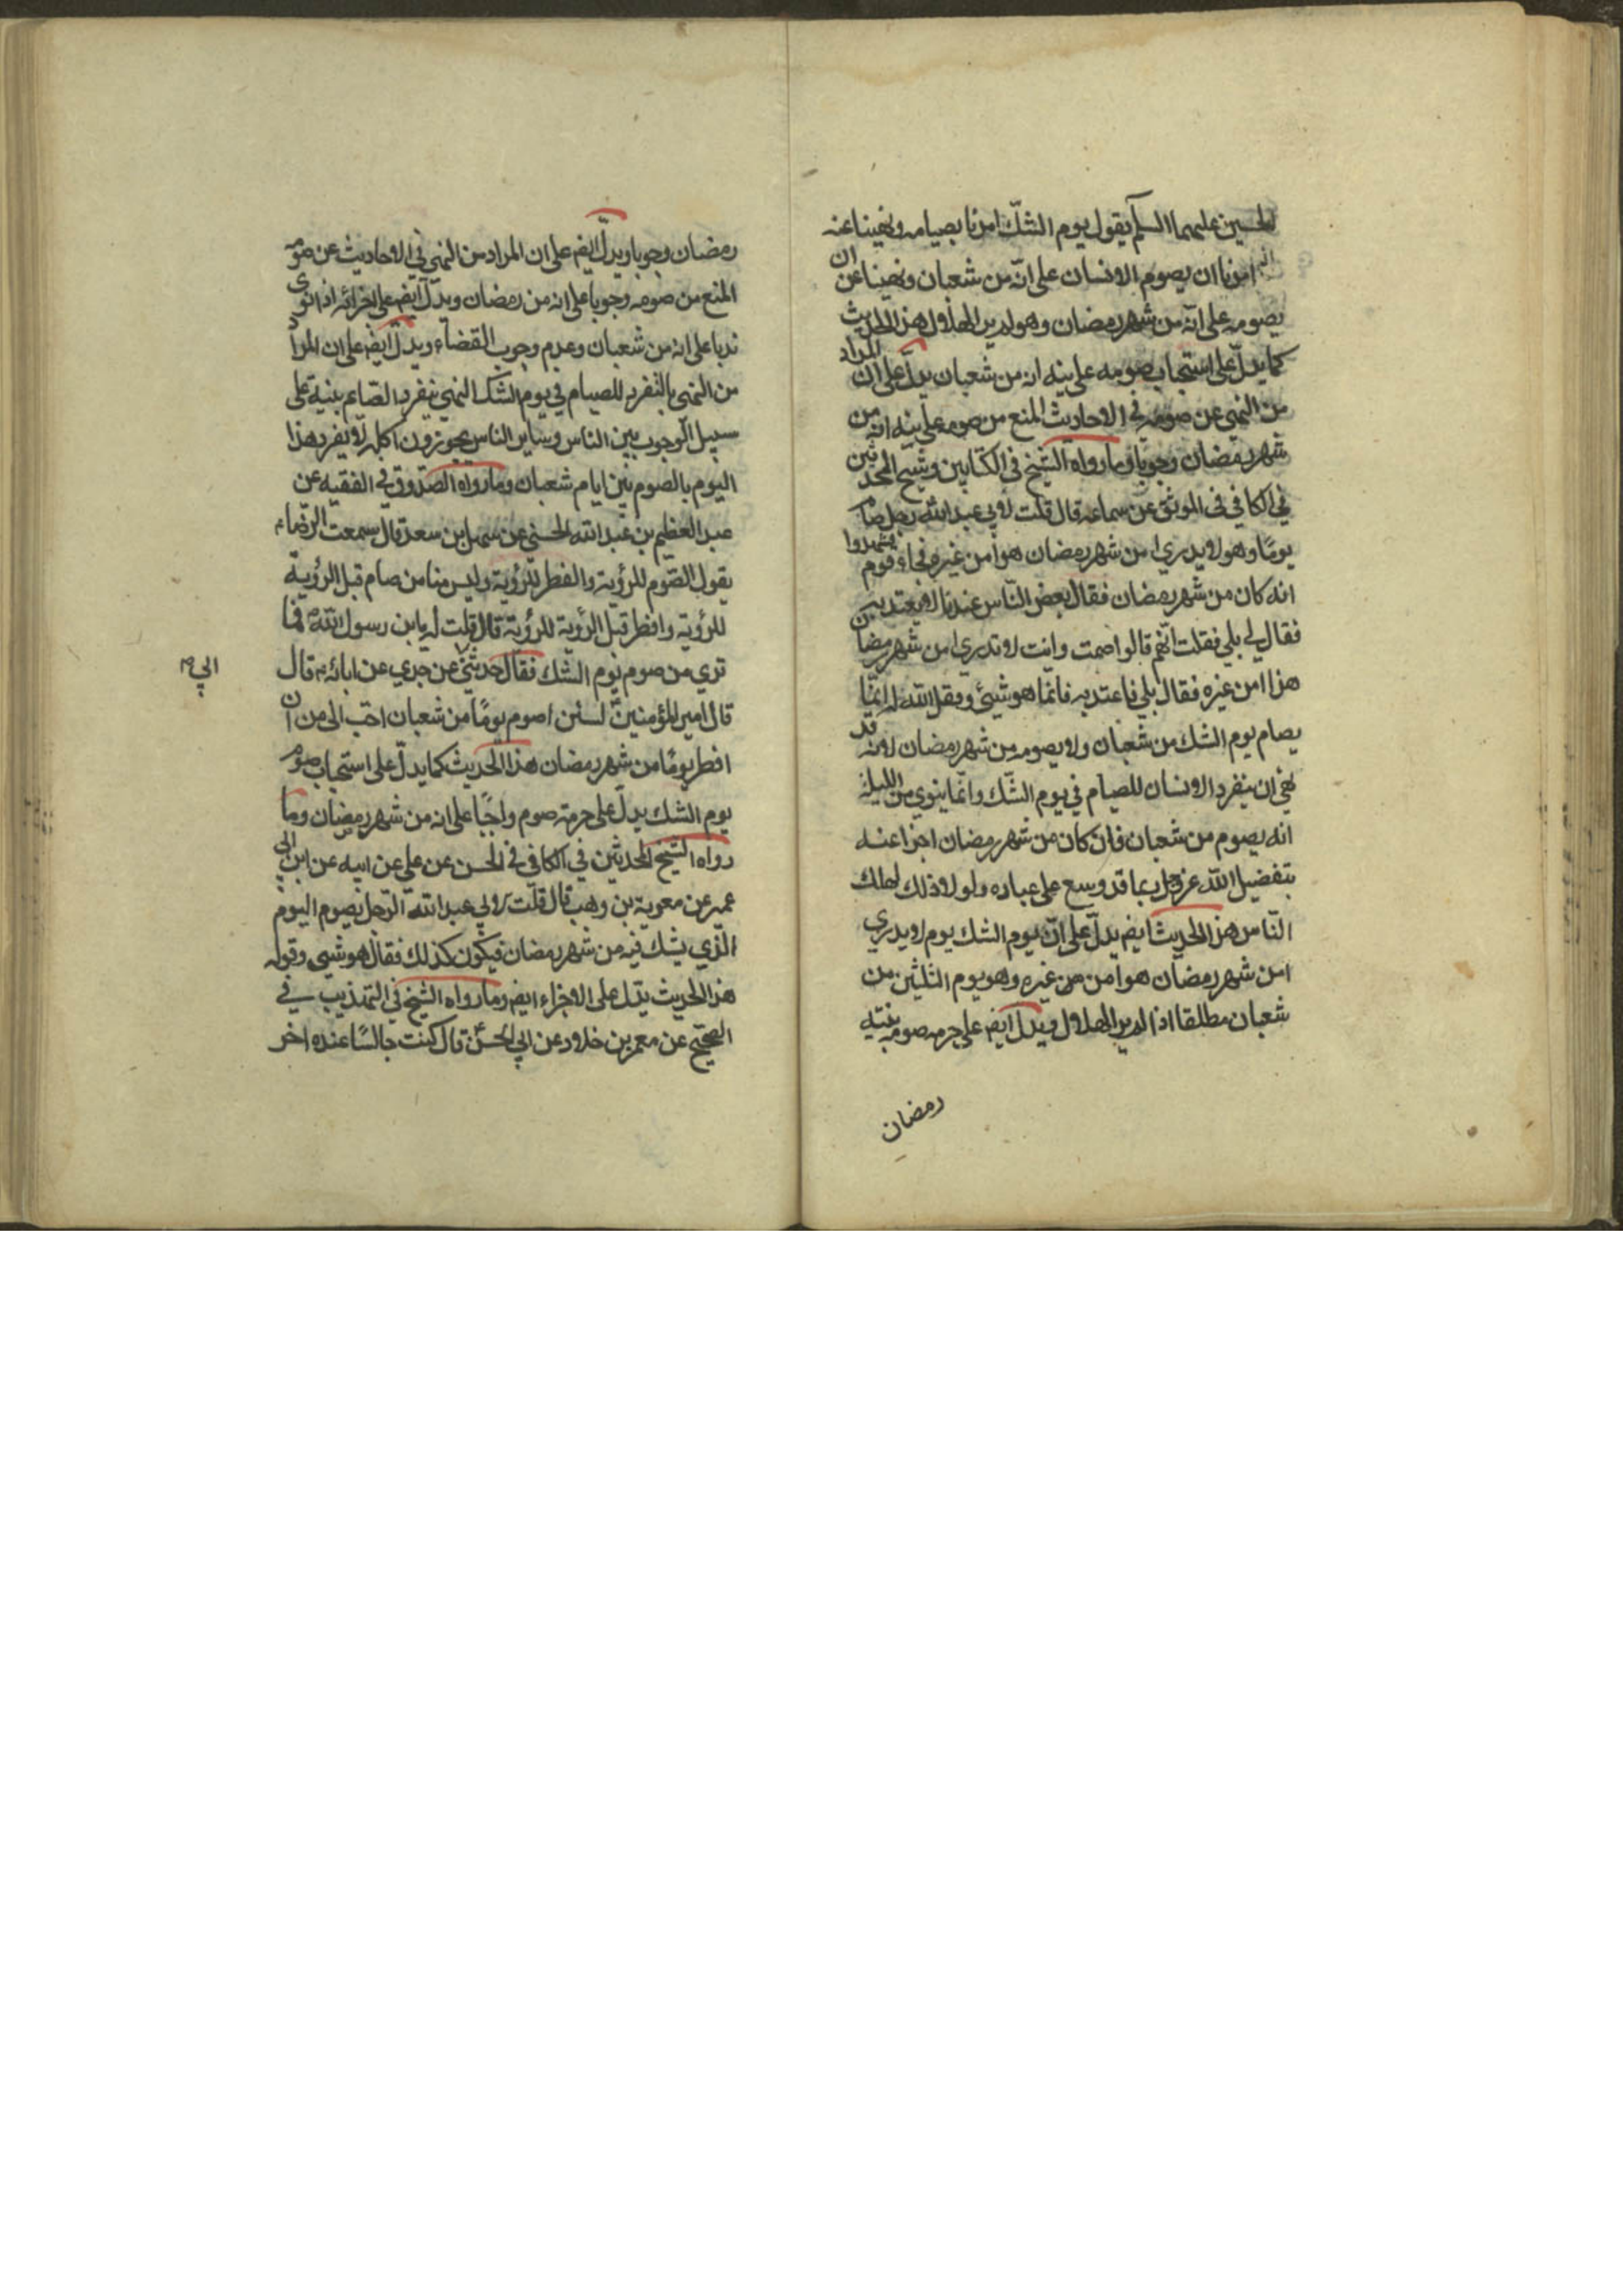 الحسين عليهما السلم يقول يوم الشكّ امرنا بصيامه ونهينا عنه
امرنا ان يصوم الانسان على انّه من شعبان ونهينا عن ان
يصومه على انّه من شهر رمضان وهو لم ير الهلال هذا الحديث
كما يدلّ على استحباب صومه على نية انه من شعبان يدلّ على ان المراد
من النهى عن صومه في الاحاديث المنع من صومه على نية انه من
شهر رمضان وجوبا وما رواه الشيخ في الكتابين وشيخ المحدثين
في الكافي في الموثق عن سماعه قال قلت لابي عبد الله رجل صام
يومًا وهو لا يدري امن شهر رمضان هو امن غيره فجاء قوم فشهدوا
انه كان من شهر رمضان فقال بعض الناس عندنا لا يعتد به
فقال لي بلي فقلت انّهم قالوا صمت وانت لا تدري امن شهر رمضان
هذا امن غيره فقال بلي فاعتد به فانما هو شيئ وفقك الله له انّما
يصام يوم الشك من شعبان ولا يصومه من شهر رمضان لانه قد
نهي ان ينفرد الانسان للصيام في يوم الشّك وانّما ينوي من الليلة
انه يصوم من شعبان فان كان من شهر رمضان اجزا عنه
بتفضيل الله عز وجل بما قد وسع على عباده ولو لا ذلك لهلك
النّاس هذا الحديث ايضم يدلّ على انّ يوم الشك يوم لا يدري
امن شهر رمضان هو امن من غيره وهو يوم الثلثين من
شعبان مطلقا اذا لم ير الهلال ويدلّ ايضم على حرمة صومه بنية
رمضان
رمضان وجوبا ويدلّ ايضم على ان المراد من النهي في الاحاديث عن صومه
المنع من صومه وجوبا على انه من رمضان ويدلّ ايضم على اجزائه اذا نوى
ندبا على انه من شعبان وعدم وجوب القضاء ويدلّ ايضم على ان المراد
من النهى بالتفرد للصيام في يوم الشك النهي بتفرد الصّايم بنية على
سبيل الوجوب بين الناس وساير الناس يجوزون اكله لا يفرد هذا
اليوم بالصوم بين ايام شعبان وما رواه الصّدوق في الفقيه عن
عبد العظيم بن عبد الله الحسني عن سهل بن سعد قال سمعت الرّضا ع
يقول الصّوم للرؤية والفطر للرؤية وليس منا من صام قبل الرؤية
للرؤية وافطر قبل الرؤية للرؤية قال قلت له يابن رسول الله فما
تري من صوم يوم الشك فقال حدثني عن جدي عن ابائه ع قال
ابي
قال امير المؤمنين لئن اصوم يومًا من شعبان احبّ الى من ان
افطر يومًا من شهر رمضان هذا الحديث كما يدلّ على استحباب صوم
يوم الشك يدلّ على حرمة صوم واجبًا على انه من شهر رمضان وما
رواه الشيخ المحدثين في الكافي في الحسن عن علي عن ابيه عن ابن ابي
عمير عن معوية بن وهب قال قلت لابي عبد الله الرّجل يصوم اليوم
الّذي يشك فيه من شهر رمضان فيكون كذلك فقال هو شيى وفق له
هذا الحديث يدلّ على الاجزاء ايضم وما رواه الشيخ في التهذيب في
الصحيح عن معمر بن خلاد عن ابي الحسن قال كنت جالسًا عنده اخر